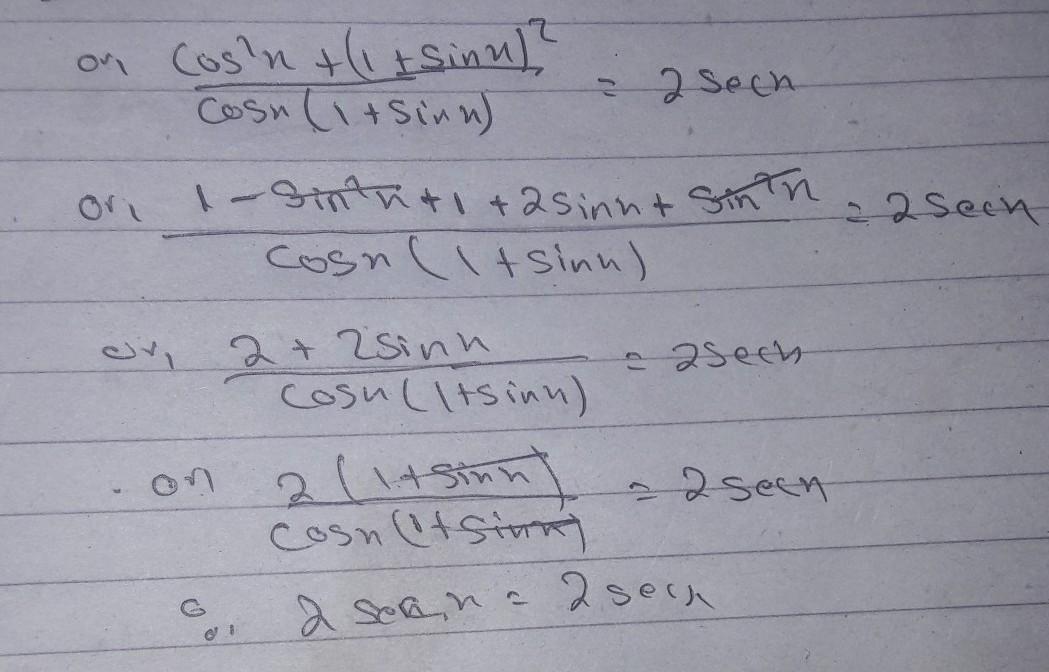 or, cos²x + (1 + sinx)² / cosx (1 + sinx) = 2 secx
or, 1 - sin²x + 1 + 2sinx + sin²x / cosx (1 + sinx) = 2 secx
or, 2 + 2sinx / cosx (1 + sinx) = 2secx
or 2 (1 + sinx) / cosx (1 + sinx) = 2 secx
∴ 2 secx = 2 secx